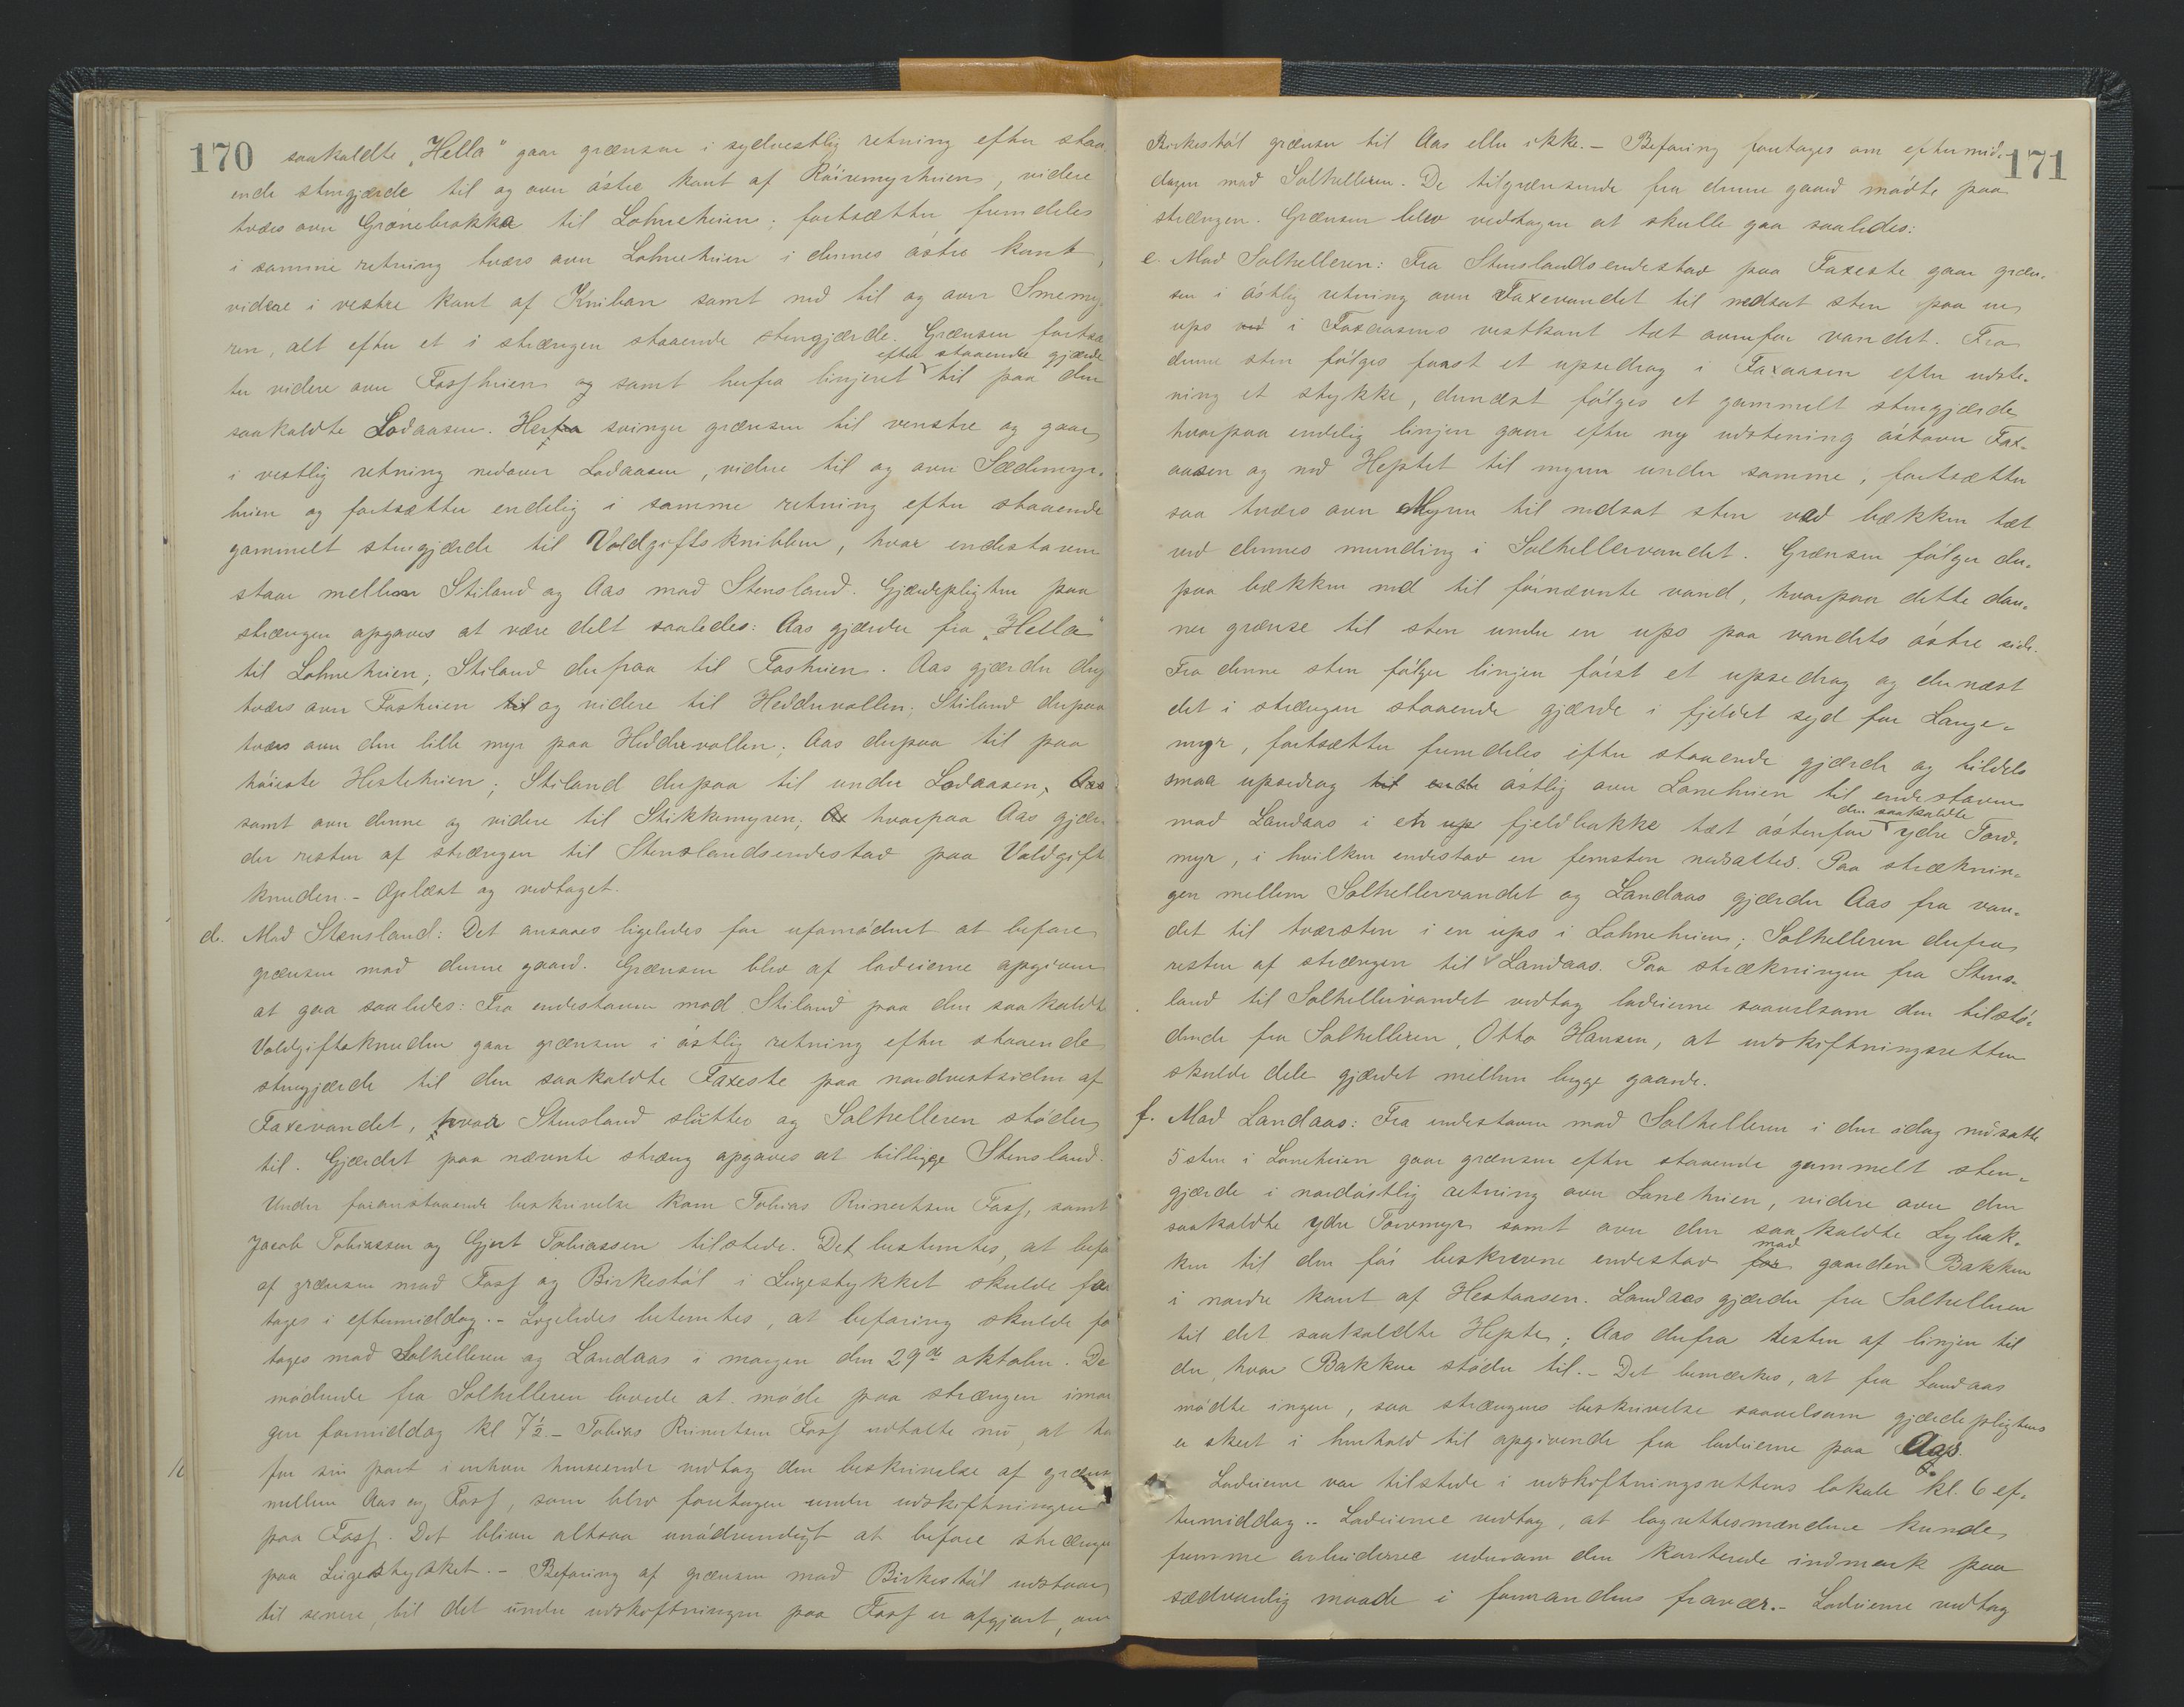 170
saakaldte „Hella" gaar grænsen i sydvestlig retning efter staa-
ende stengjærde til og over östre kant af Röiremyrheien, videre
tværs over Grönebrokka til Lohneheien; fortsætter fremdeles
i samme retning tværs over Lohneheien i dennes östre kant,
videre i vestre kant af Kniban samt ned til og over Smemy-
ren, alt efter et i strængen staaende stengjærde. Grænsen fortsæ-
ter videre over Fossheien og samt herfra linjeret efter staaende gjærde til paa den
saakaldte Lodaasen. Herfra svinger grænsen til venstre og gaar
i vestlig retning nedover Lodaasen, videre til og over Sædemyr-
heien og fortsætter endelig i samme retning efter staaende
gammelt stengjærde til Voldgiftsknibben, hvor endestaven
staar mellem Stiland og Aas mod Stensland. Gjærdepligten paa
strængen opgaves at være delt saaledes: Aas gjærder fra „Hella"
til Lohneheien; Stiland derfra til Fosheien. Aas gjærder der
tværs over Fosheien til og videre til Heddervollen; Stiland derpaa
tværs over den lille myr paa Heddervollen; Aas derpaa til paa
höieste Hesteheien; Stiland derpaa til under Lodaasen, Aas
samt over denne og videre til Stikkemyren; hvorpaa Aas gjær-
der resten af strængen til Stenslandsendestav paa Voldgift
knuden. - Oplæst og vedtaget.
d. Mod Stensland: Det ansaaes ligeledes for ufornödent at befare
grænsen mod denne gaard. Grænsen blev af lodeierne opgiven
at gaa saaledes: Fra endestaven mod Stiland paa den saakaldte
Voldgiftsknuden gaar grænsen i östlig retning efter staaende
stengjærde til den saakaldte Faxeste paa nordvestsiden af
Faxevandet, hvor Stensland slutter og Solhelleren stöder
til. Gjærdet paa nævnte stræng opgaves at tilligge Stensland.
Under foranstaaende beskrivelse kom Tobias Reinertsen Foss, samt
Jacob Tobiassen og Gjert Tobiassen tilstede. Det bestemtes, at befa
af grænsen mod Foss og Birkestöl i Leigestykket skulde fore
tages i eftermiddag. - Ligeledes betemtes, at befaring skulde fo
tages mod Solhelleren og Landaas i morgen den 29de oktober. De
mödende fra Solhelleren lovede at möde paa strængen imor
gen formiddag kl 7½. - Tobias Reinertsen Foss udtalte nu, at ha
for sin part i enhver henseende vedtog den beskrivelse af græns
mellem Aas og Foss, som blev foretagen under udskiftningen
paa Foss. Det bliver altsaa unödvendigt at befare strænge
paa Leigestykket. - Befaring af grænsen mod Birkestöl udstaar
til senere, til det under udskiftningen paa Foss er afgjort, om
171
Birkestöl grænser til Aas eller ikke. - Befaring foretages om eftermid-
dagen mod Solhelleren. De tilgrænsende fra denne gaard mödte paa
strængen. Grænsen blev vedtagen at skulle gaa saaledes:
e. Mod Solhelleren: Fra Stenslandsendestav paa Faxeste gaar græn-
sen i östlig retning over Faxevandet til nedsat sten paa en
ups ved i Faxaasens vestkant tæt ovenfor vandet. Fra
denne sten fölges först et upsedrag i Faxaasen efter udste-
ning et stykke, dernæst fölges et gammelt stengjærde
hvorpaa endelig linjen gaar efter ny udstening östover Fax-
aasen og ned Heptet til myren under samme, fortsætter
saa tværs over Myren til nedsat sten ved bækken tæt
ved dennes munding i Solhellervandet. Grænsen fölger der-
paa bækken ned til förnævnte vand, hvorpaa dette dan-
ner grænse til sten under en ups paa vandets östre side.
Fra denne sten fölger linjen först et upsedrag og dernæst
det i strængen staaende gjærde i fjeldet syd for Lange-
myr, fortsætter fremdeles efter staaende gjærde og tildels
smaa upsedrag til ende östlig over Laneheien til endestaven
mod Landaas i en ups fjeldbakke tæt östenfor den saakaldte ydre Torv-
myr, i hvilken endestav en femsten nedsattes. Paa stræknin-
gen mellem Solhellervandet og Landaas gjærder Aas fra van-
det til tværsten i en ups i Lohneheien; Solhelleren derfra
resten af strængen til Landaas. Paa strækningen fra Stens-
land til Solhellervandet vedtog lodeierne saavelsom den tilstö-
dende fra Solhelleren, Otto Hansen, at udskiftningsretten
skulde dele gjærdet mellem begge gaarde.
f. Mod Landaas: Fra endestaven mod Solhelleren i den idag nedsatte
5 sten i Laneheien gaar grænsen efter staaende gammelt sten-
gjærde i nordöstlig retning over Laneheien, videre over den
saakaldte ydre Torvmyr samt over den saakaldte Lybak-
ken til den för beskrevne endestav for mod gaarden Bakken
i nordre kant af Hestaasen. Landaas gjærder fra Solhelleren
til det saakaldte Hepte; Aas derfra resten af linjen til
der, hvor Bakken stöder til. - Det bemærkes, at fra Landaas
mödte ingen, saa strængens beskrivelse saavelsom gjærdepligtens
er skeet i henhold til opgivende fra lodeierne paa Aas.
Lodeierne var tilstede i udskiftningsrettens lokale kl. 6 ef-
termiddag. - Lodeierne vedtog, at lagrettesmændene kunde
fremme arbeiderne udenom den karterede indmark paa
sædvanlig maade i formandens fravær. - Lodeierne vedtog